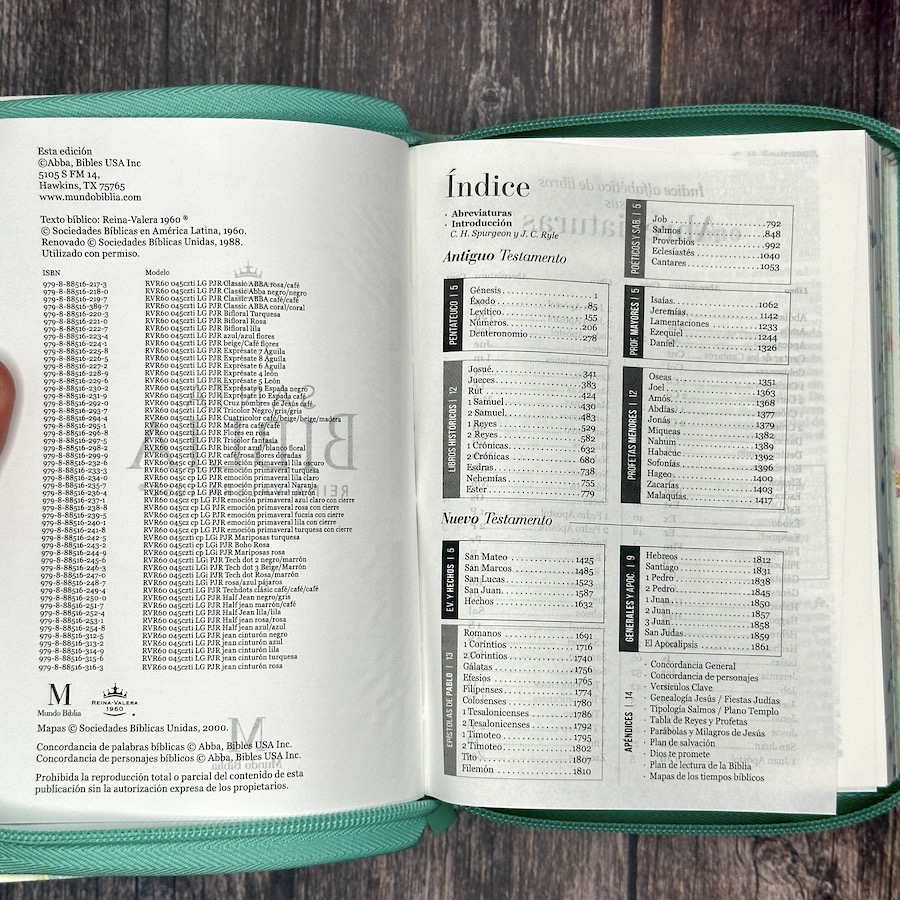 Esta edición
©Abba, Bibles USA Inc
5105 S FM 14,
Hawkins, TX 75765
www.mundobiblia.com
Texto bíblico: Reina-Valera 1960 ®
© Sociedades Bíblicas en América Latina, 1960.
Renovado © Sociedades Bíblicas Unidas, 1988.
Utilizado con permiso.
ISBN Modelo
979-8-88516-217-3 RVR60 045czti LG PJR Classic ABBA rosa/café
979-8-88516-218-0 RVR60 045czti LG PJR Classic Abba negro/negro
979-8-88516-219-7 RVR60 045czti LG PJR Classic ABBA café/café
979-8-88516-389-7 RVR60 045czti LG PJR Classic ABBA coral/coral
979-8-88516-220-3 RVR60 045czti LG PJR Bifloral Turquesa
979-8-88516-221-0 RVR60 045czti LG PJR Bifloral Rosa
979-8-88516-222-7 RVR60 045czti LG PJR Bifloral lila
979-8-88516-223-4 RVR60 045czti LG PJR azul/azul flores
979-8-88516-224-1 RVR60 045czti LG PJR beige/Café flores
979-8-88516-225-8 RVR60 045czti LG PJR Exprésate 7 Águila
979-8-88516-226-5 RVR60 045czti LG PJR Exprésate 8 Águila
979-8-88516-227-2 RVR60 045czti LG PJR Exprésate 6 Águila
979-8-88516-228-9 RVR60 045czti LG PJR Exprésate 4 león
979-8-88516-229-6 RVR60 045czti LG PJR Exprésate 5 León
979-8-88516-230-2 RVR60 045czti LG PJR Exprésate 9 Espada negro
979-8-88516-231-9 RVR60 045czti LG PJR Exprésate 10 Espada café
979-8-88516-292-0 RVR60 045czti LG PJR Cruz nombres de Jesús café
979-8-88516-293-7 RVR60 045czti LG PJR Tricolor Negro/gris/gris
979-8-88516-294-4 RVR60 045czti LG PJR Cuatricolor café/beige/beige/madera
979-8-88516-295-1 RVR60 045czti LG PJR Madera café/café
979-8-88516-296-8 RVR60 045czti LG PJR Flores en rosa
979-8-88516-297-5 RVR60 045czti LG PJR Tricolor fantasía
979-8-88516-298-2 RVR60 045czti LG PJR bicolor azul/blanco floral
979-8-88516-299-9 RVR60 045czti LG PJR café/rosa flores doradas
979-8-88516-232-6 RVR60 045czti LG PJR emoción primaveral lila oscuro
979-8-88516-233-3 RVR60 045czti LG PJR emoción primaveral turquesa
979-8-88516-234-0 RVR60 045czti LG PJR emoción primaveral lila claro
979-8-88516-235-7 RVR60 045czti LG PJR emoción primaveral Naranja
979-8-88516-236-4 RVR60 045czti LG PJR emoción primaveral marrón
979-8-88516-237-1 RVR60 045czti LG PJR emoción primaveral azul claro con cierre
979-8-88516-238-8 RVR60 045czti LG PJR emoción primaveral rosa con cierre
979-8-88516-239-5 RVR60 045czti LG PJR emoción primaveral fucsia con cierre
979-8-88516-240-1 RVR60 045czti LG PJR emoción primaveral lila con cierre
979-8-88516-241-8 RVR60 045czti LG PJR emoción primaveral turquesa con cierre
979-8-88516-242-5 RVR60 045czti cp LGi PJR Mariposas turquesa
979-8-88516-243-2 RVR60 045czti cp LG PJR Boho Rosa
979-8-88516-244-9 RVR60 045czti cp LG PJR Mariposas rosa
979-8-88516-245-6 RVR60 045czti LGi PJR Tech dot 2 negro/marrón
979-8-88516-246-3 RVR60 045czti LG PJR Tech dot 3 Beige/Marrón
979-8-88516-247-0 RVR60 045czti LG PJR Tech dot Rosa/marrón
979-8-88516-248-7 RVR60 045czti LGi PJR rosa/azul pájaros
979-8-88516-249-4 RVR60 045czti LG PJR Techdots clásic café/café/café
979-8-88516-250-0 RVR60 045czti LG PJR Half Jean negro/gris
979-8-88516-251-7 RVR60 045czti LG PJR Half jean marrón/café
979-8-88516-252-4 RVR60 045czti LG PJR Half Jean lila/lila
979-8-88516-253-1 RVR60 045czti LG PJR Half jean rosa/rosa
979-8-88516-254-8 RVR60 045czti LG PJR Half jean azul/azul
979-8-88516-312-5 RVR60 045czti LG PJR jean cinturón negro
979-8-88516-313-2 RVR60 045czti LG PJR jean cinturón azul
979-8-88516-314-9 RVR60 045czti LG PJR jean cinturón lila
979-8-88516-315-6 RVR60 045czti LG PJR jean cinturón turquesa
979-8-88516-316-3 RVR60 045czti LG PJR jean cinturón rosa
M
Mundo Biblia
REINA-VALERA
1960
Mapas © Sociedades Bíblicas Unidas, 2000.
Concordancia de palabras bíblicas © Abba, Bibles USA Inc.
Concordancia de personajes bíblicos © Abba, Bibles USA Inc.
Prohibida la reproducción total o parcial del contenido de esta
publicación sin la autorización expresa de los propietarios.
Índice
· Abreviaturas
· Introducción
C. H. Spurgeon y J. C. Ryle
Antiguo Testamento
PENTATEUCO | 5
Génesis 1
Éxodo 85
Levítico 155
Números 206
Deuteronomio 278
LIBROS HISTÓRICOS | 12
Josué 341
Jueces 383
Rut 424
1 Samuel 430
2 Samuel 483
1 Reyes 529
2 Reyes 582
1 Crónicas 632
2 Crónicas 680
Esdras 738
Nehemías 755
Ester 779
POÉTICOS Y SAB. | 5
Job 792
Salmos 848
Proverbios 992
Eclesiastés 1040
Cantares 1053
PROF. MAYORES | 5
Isaías 1062
Jeremías 1142
Lamentaciones 1233
Ezequiel 1244
Daniel 1326
PROFETAS MENORES | 12
Oseas 1351
Joel 1363
Amós 1368
Abdías 1377
Jonás 1379
Miqueas 1382
Nahum 1389
Habacuc 1392
Sofonías 1396
Hageo 1400
Zacarías 1403
Malaquías 1417
Nuevo Testamento
EV. Y HECHOS | 5
San Mateo 1425
San Marcos 1485
San Lucas 1523
San Juan 1587
Hechos 1632
EPÍSTOLAS DE PABLO | 13
Romanos 1691
1 Corintios 1716
2 Corintios 1740
Gálatas 1756
Efesios 1765
Filipenses 1774
Colosenses 1780
1 Tesalonicenses 1786
2 Tesalonicenses 1792
1 Timoteo 1795
2 Timoteo 1802
Tito 1807
Filemón 1810
GENERALES Y APOC. | 9
Hebreos 1812
Santiago 1831
1 Pedro 1838
2 Pedro 1845
1 Juan 1850
2 Juan 1857
3 Juan 1858
San Judas 1859
El Apocalipsis 1861
APÉNDICES | 14
· Concordancia General
· Concordancia de personajes
· Versículos Clave
· Genealogía Jesús / Fiestas Judías
· Tipología Salmos / Plano Templo
· Tabla de Reyes y Profetas
· Parábolas y Milagros de Jesús
· Plan de salvación
· Dios te promete
· Plan de lectura de la Biblia
· Mapas de los tiempos bíblicos